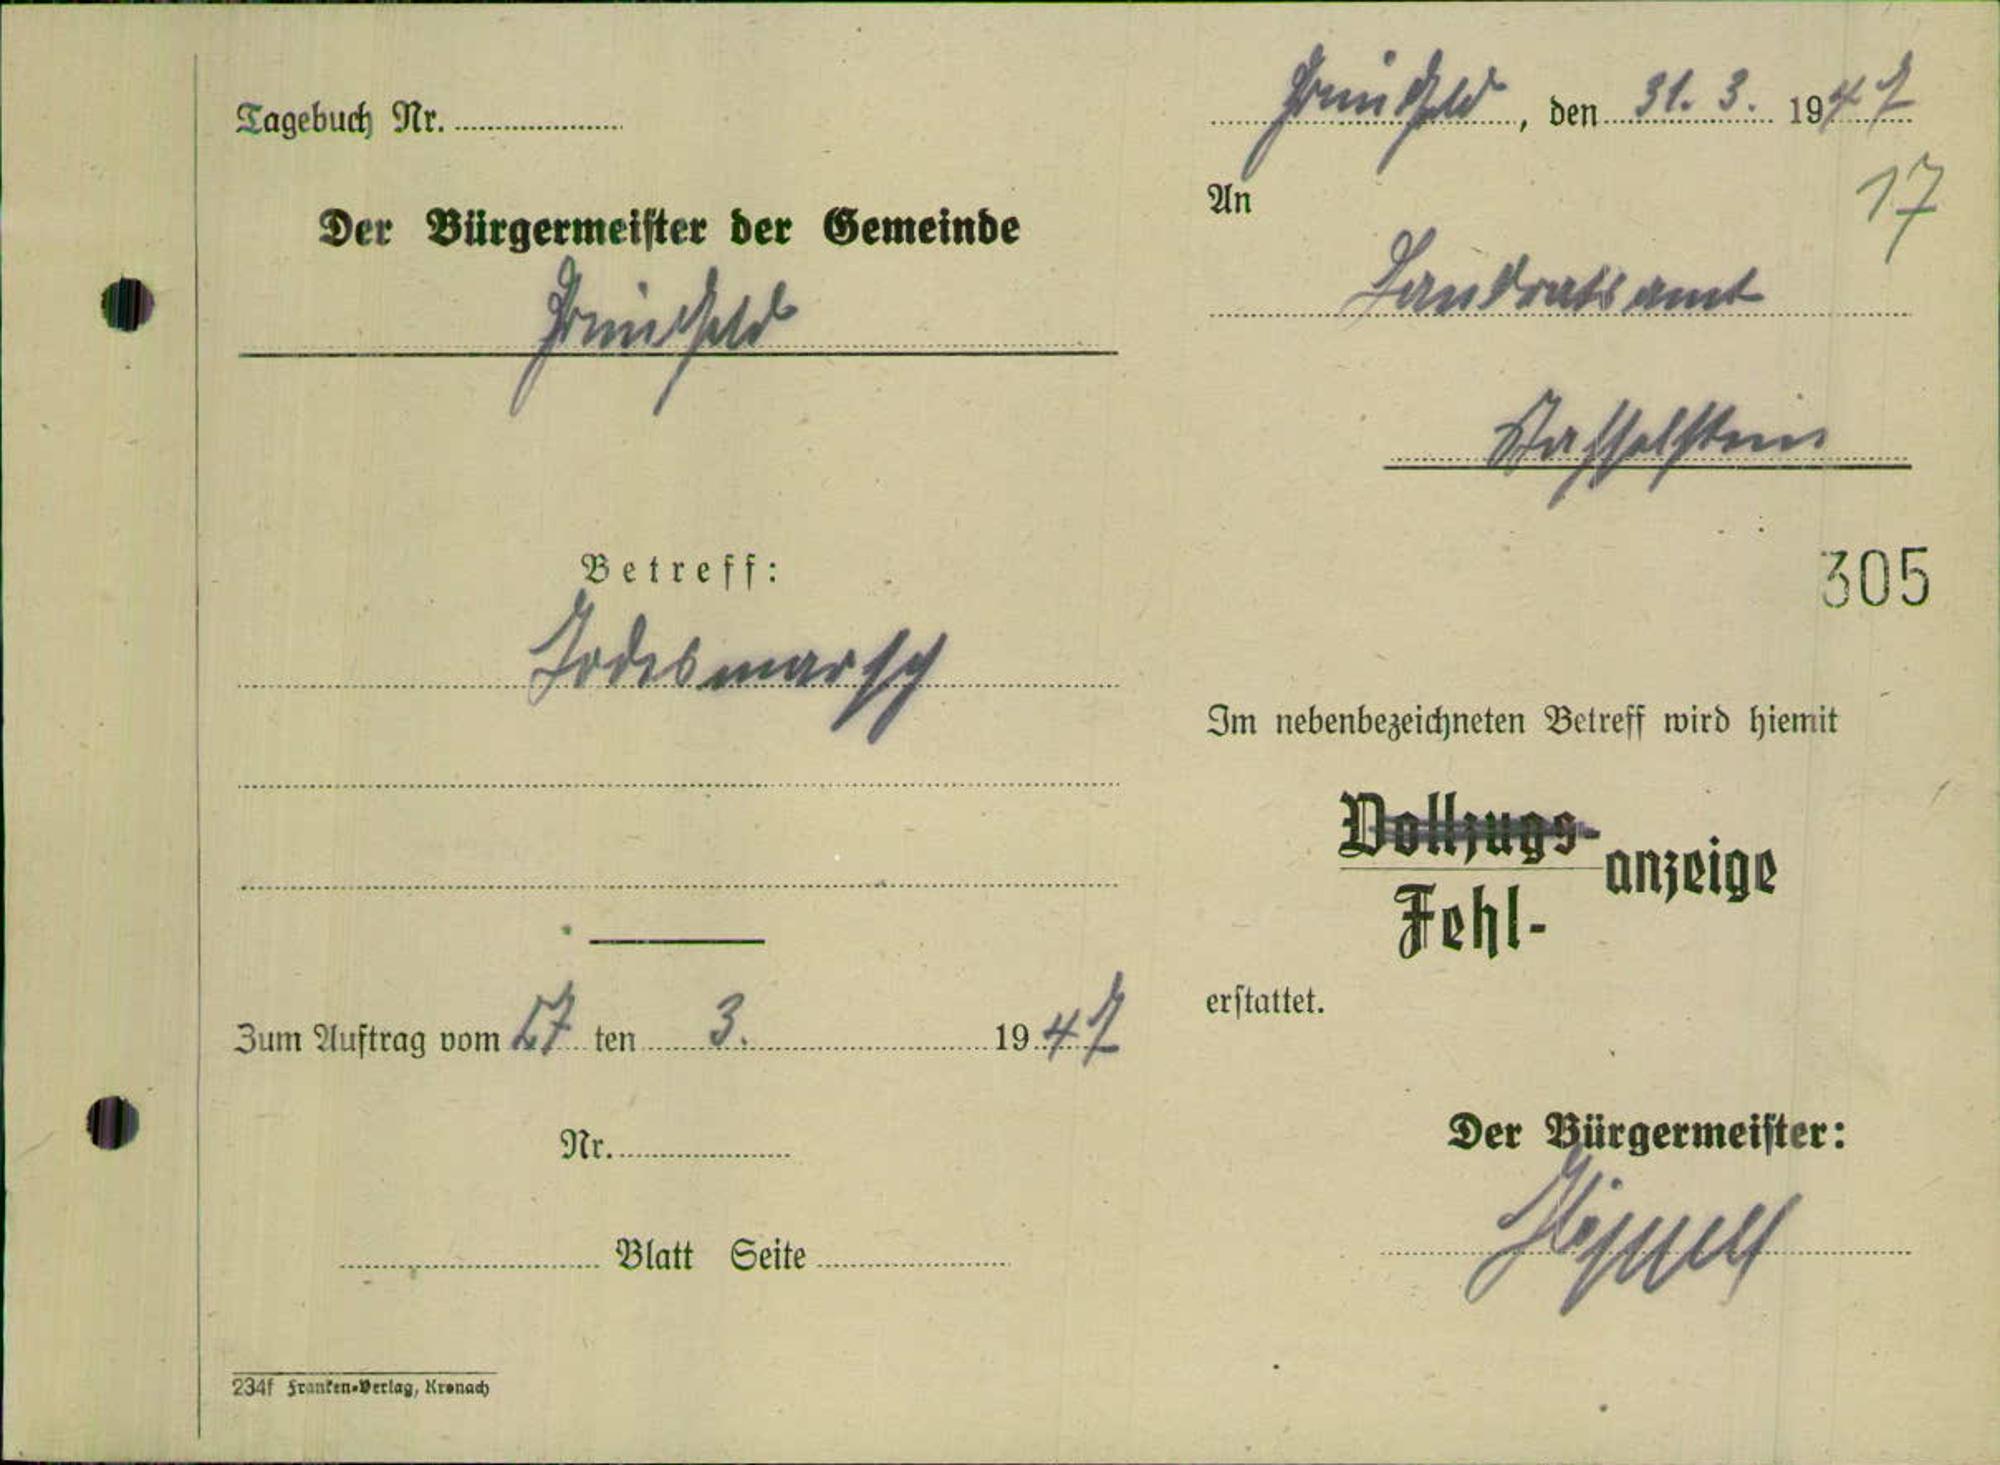 Tagebuch Nr.
Der Bürgermeister der Gemeinde
Grundfeld
Betreff:
Todesmarsch
Zum Auftrag vom 27 ten 3. 1947
Nr.
Blatt Seite
234f Franken-Verlag, Kronach
Grundfeld, den 31. 3. 1947
An
17
Landratsamt
Staffelstein
305
Im nebenbezeichneten Betreff wird hiemit
Vollzugs-
anzeige
Fehl-
erstattet.
Der Bürgermeister: